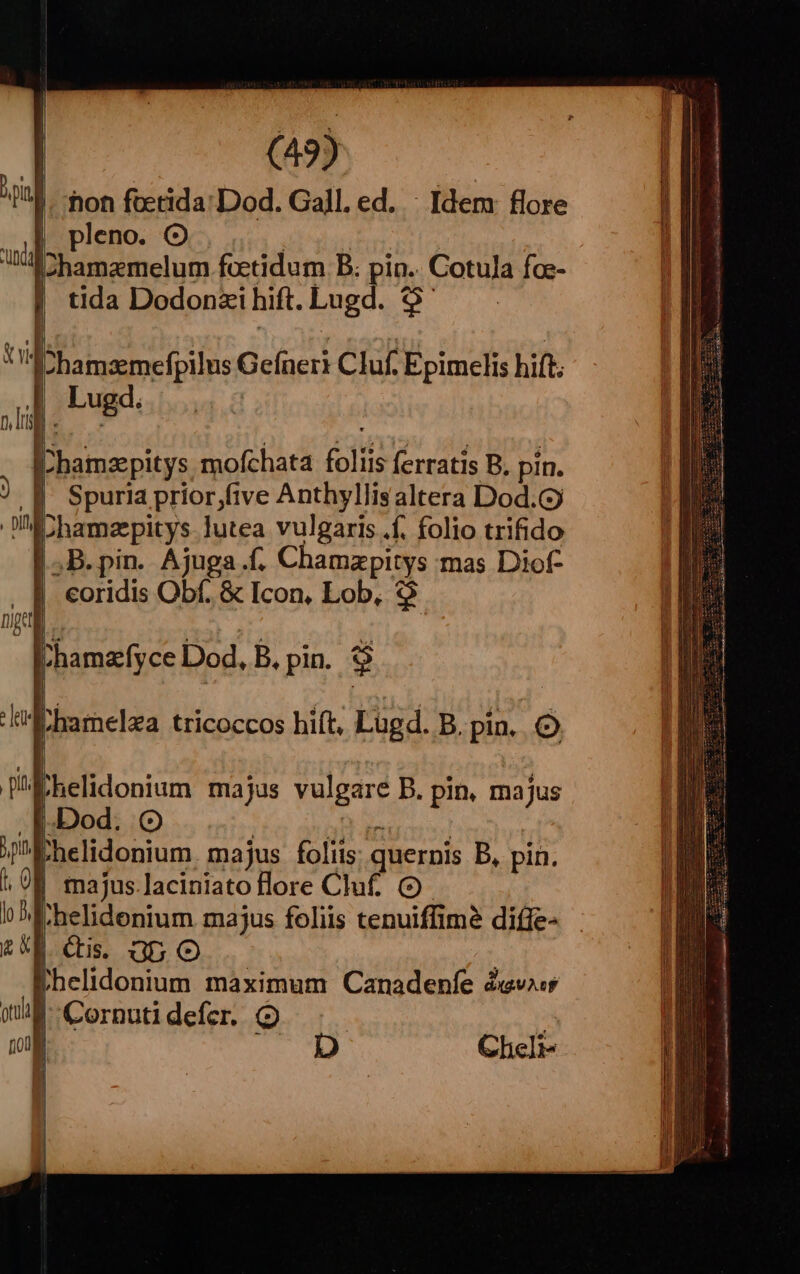 (49)
non fœtida Dod. Gall. ed. Idem flore
pleno. ☉
Chamæmelum fœtidum B. pin. Cotula fœ-
tida Dodonæi hiſt. Lugd. ☿
Chamæmeſpilus Geſneri Cluſ. Epimelis hiſt.
Lugd.
Chamæpitys moſchata foliis ſerratis B. pin.
Spuria prior, ſive Anthyllis altera Dod. ☉
Chamæpitys lutea vulgaris .ſ. folio trifido
B. pin. Ajuga .ſ. Chamæpitys mas Dioſ-
coridis Obſ. & Icon, Lob, ☿
Chamæſyce Dod, B, pin. ☿
Chamelæa tricoccos hiſt, Lugd. B. pin. ☉
Chelidonium majus vulgare B. pin, majus
Dod. ☉
Chelidonium majus foliis quernis B, pin.
majus laciniato flore Cluſ. ☉
Chelidonium majus foliis tenuiſſimè diſſe-
ctis. ☉
Chelidonium maximum Canadenſe
Cornuti deſcr. ☉
D Cheli-